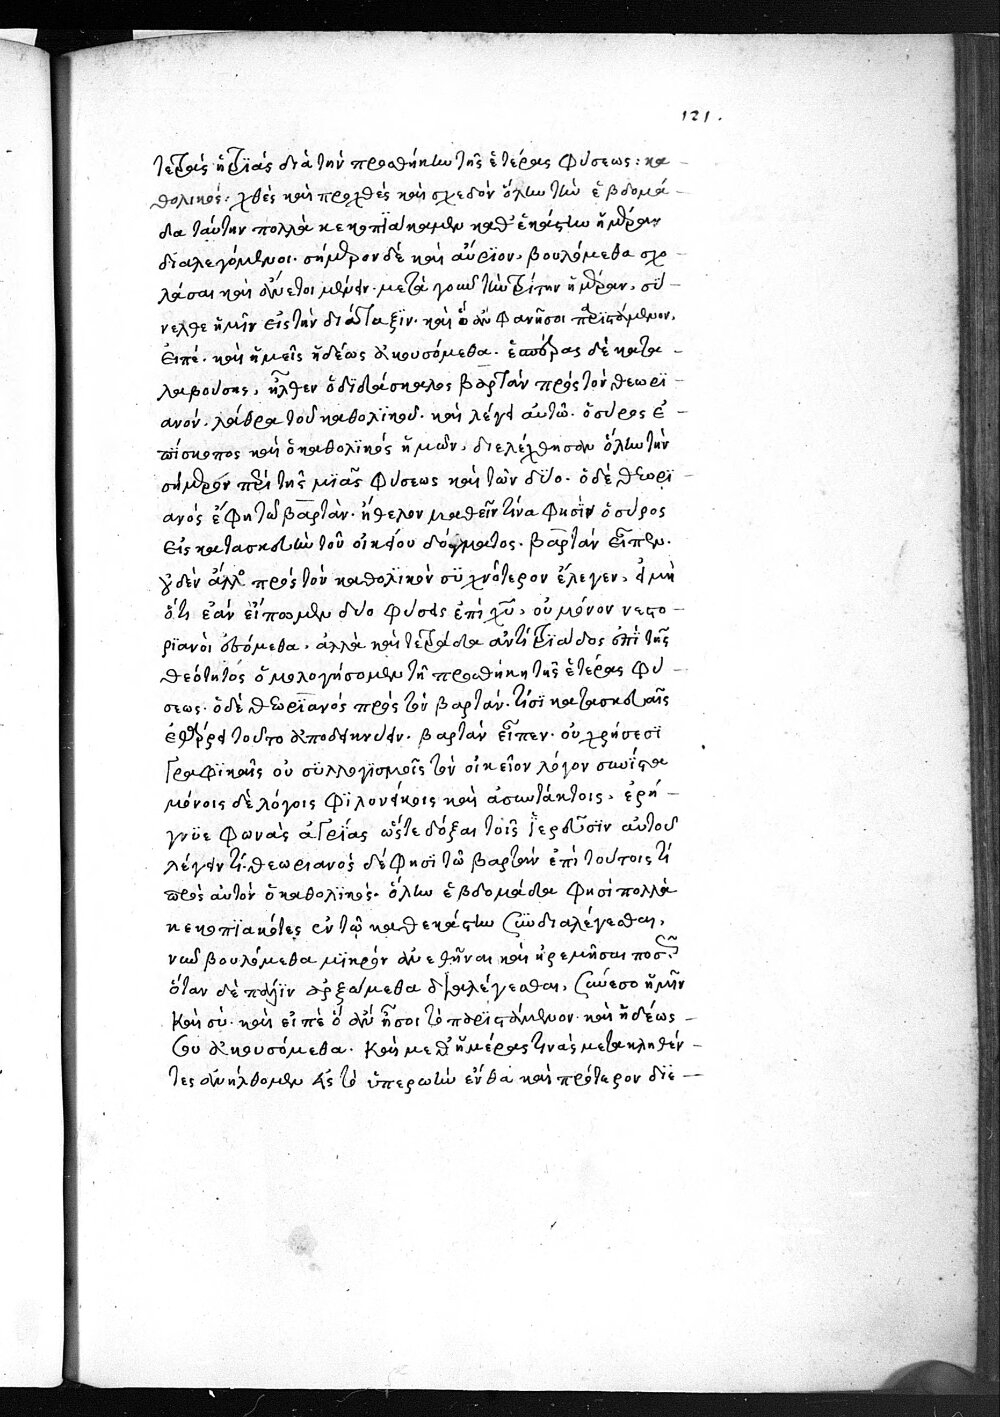 121.
τετρὰς ἡ τριὰς διὰ τὴν προσθήκην τῆς ἑτέρας φύσεως: κα -
θολικός· χθὲς καὶ προχθὲς καὶ σχεδὸν ὅλην τὴν ἑβδομά -
δα ταύτην πολλὰ κεκοπιάκαμεν καθ' ἑκάστην ἡμέραν
διαλεγόμενοι· σήμερον δὲ καὶ αὔριον, βουλόμεθα σχο -
λάσαι καὶ μετὰ γοῦν τὴν τρίτην ἡμέραν, σύ -
νελθε ἡμῖν εἰς τὴν διάταξιν· καὶ ὃ ἂν φανῆσοι παριστάμενον,
εἰπέ· καὶ ἡμεῖς ἡδέως ἀκουσόμεθα· ἑσπέρας δὲ κατα -
λαβούσης, ἦλθεν ὁ διδάσκαλος βαρτὰν πρὸς τὸν θεωρι -
ανόν, λάθρα τοῦ καθολικοῦ· καὶ λέγει αὐτῶ· ὁ σύρος ἐ -
πίσκοπος καὶ ὁ καθολικός ἡμῶν, διελέχθησαν ὅλην τὴν
σήμερον περὶ τῆς μιᾶς φύσεως καὶ τῶν δύο· ὁ δὲ θεωρι -
ανός ἔφη τῶ βαρτὰν· ἤθελον μαθεῖν τίνα φησὶν ὁ σύρος
εἰς κατασκευὴν τοῦ οἰκείου δόγματος· βαρτάν εἶπεν·
οὐδὲν ἄλλο πρὸς τὸν καθολικὸν συχνότερον ἔλεγεν, εἰ μὴ
ὅτι ἐὰν εἴπωμεν δυο φύσεις ἐπὶ χυ, οὐ μόνον νεστο -
ριανοὶ ἐσόμεθα, ἀλλὰ καὶ τετράδα ἀντὶ τριάδος ἐπὶ τῆς
θεότητος ὁμολογήσομεν τῆ προσθήκη τῆς ἑτέρας φύ -
σεως· ὁ δὲ θεωριανός πρὸς τὸν βαρτάν· τίσι κατασκευαῖς
τοῦτο ἀποδεικνύειν· βαρτὰν εἶπεν· οὐ χρήσεσι
γραφικαῖς οὐ συλλογισμοῖς τὸν οἰκεῖον λόγον συνίστα
μόνοις δὲ λόγοις φιλονείκοις καὶ ἀσυντάκτοις, ἐρή -
γνυε φωνὰς ἀγρίας ὥστε δόξαι τοῖς ἱερεῦσιν αὐτοῦ
λέγειν τί· θεωριανὸς δέ φησι τῶ βαρτὰν ἐπὶ τούτοις τί
πρὸς αὐτὸν ὁ καθολικός· ὅλην ἑβδομάδα φησὶ πολλὰ
κεκοπιακότες ἐν τῶ καθεκάστην συνδιαλέγεσθαι,
νῦν βουλόμεθα μικρὸν ἀνεθῆναι καὶ ἠρεμῆσαι ποσῶς·
ὅταν δὲ πάλιν ἀρξώμεθα διαλέγεσθαι, σύνεσο ἡμῖν
καὶ σὺ· καὶ εἰπὲ ὃ ἂν ἦσοι τὸ παριστάμενον· καὶ ἡδέως -
σου ἀκουσόμεθα· Καὶ μεθ' ἡμέρας τινὰς μετακληθέν -
τες ἀνήλθομεν εἰς τὸ ὑπερωὸν ἔνθα καὶ πρότερον διε -